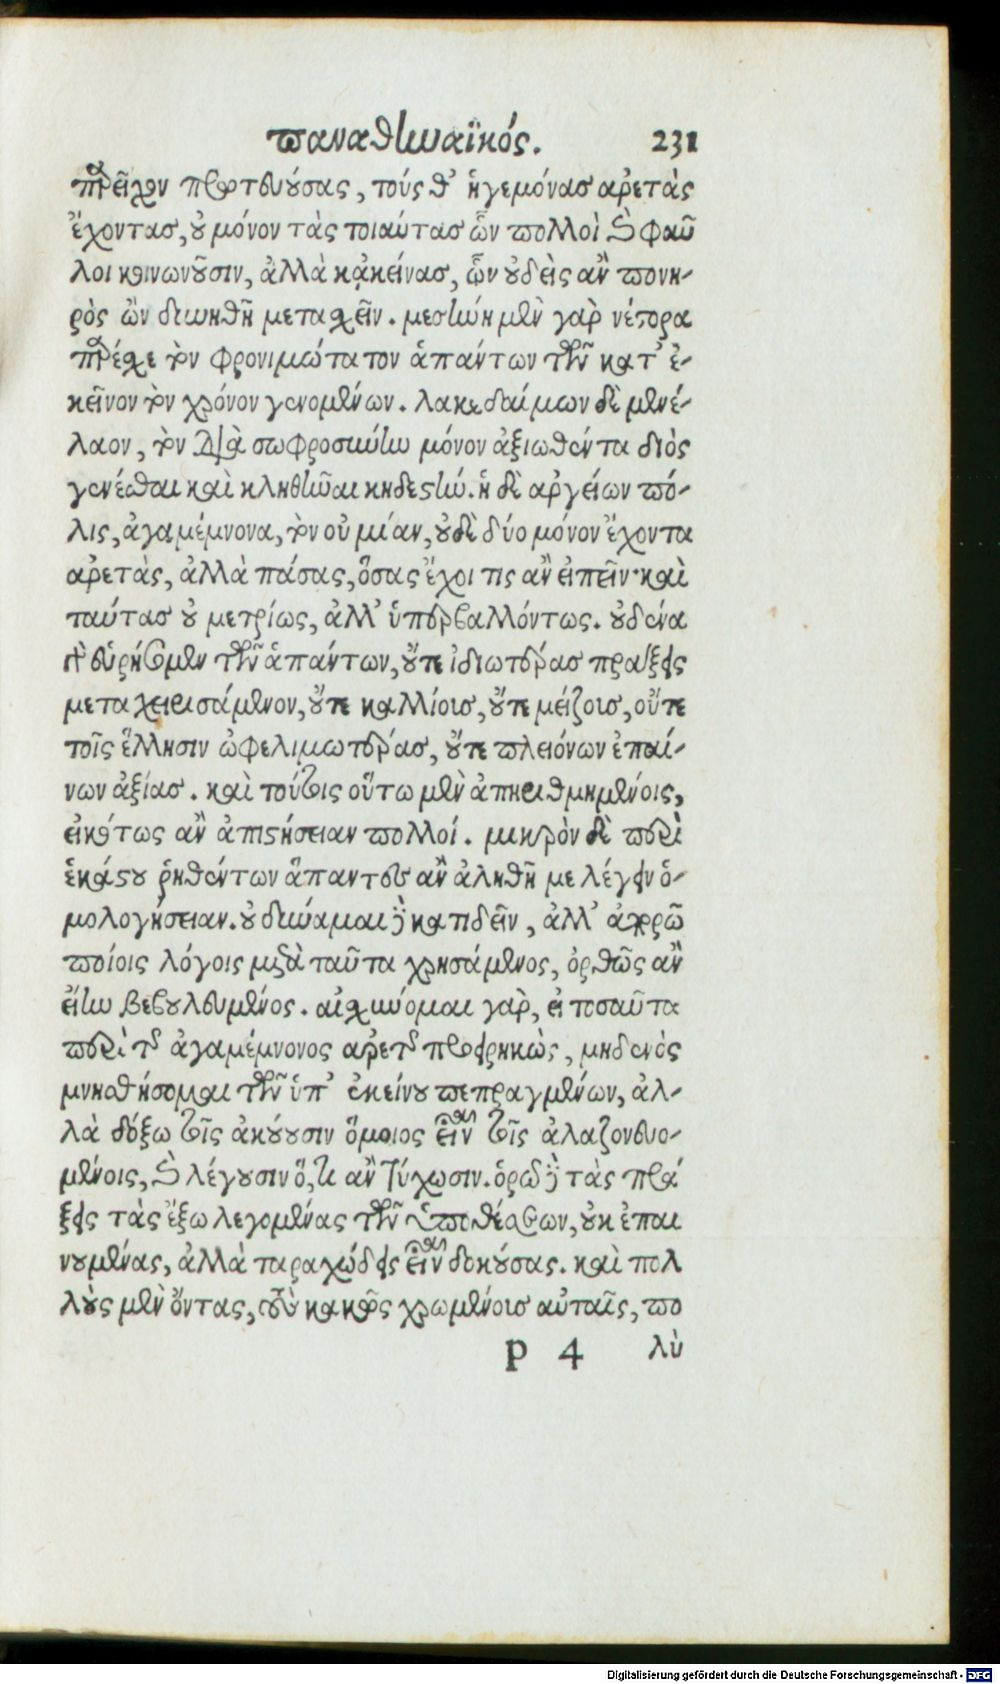 παναθηναϊκός. 231
παρεῖχον πρωτευούσας, τούς θ' ἡγεμόνας ἀρετὰς
ἔχοντας, οὐ μόνον τὰς τοιαύτας ὧν πολλοὶ καὶ φαῦ
λοι κοινωνοῦσιν, ἀλλὰ κἀκείνας, ὧν οὐδεὶς ἂν πονη-
ρὸς ὢν δυνηθῆ μετασχεῖν. μεσήνη μὲν γὰρ νέστορα
παρέσχε τὸν φρονιμώτατον ἁπάντων τῶν κατ' ἐ-
κεῖνον τὸν χρόνον γενομένων. λακεδαίμων δὲ μενέ-
λαον, τὸν διὰ σωφροσύνην μόνον ἀξιωθέντα διὸς
γενέσθαι καὶ κληθῆναι κηδεστήν. ἡ δὲ ἀργείων πό-
λις, ἀγαμέμνονα, τὸν οὐ μίαν, οὐδὲ δύο μόνον ἔχοντα
ἀρετὰς, ἀλλὰ πάσας, ὅσας ἔχοι τις ἂν εἰπεῖν· καὶ
ταύτας οὐ μετρίως, ἀλλ' ὑπερβαλλόντως. οὐδένα
γὰρ εὑρήσομεν τῶν ἁπάντων, οὔτε ἰδιωτέρας πράξεις
μεταχειρισάμενον, οὔτε καλλίοις, οὔτε μείζοις, οὔτε
τοῖς ἕλλησιν ὠφελιμωτέρας, οὔτε πλειόνων ἐπαί-
νων ἀξίας. καὶ τούτοις οὕτω μὲν ἀπηριθμημένοις,
εἰκότως ἂν ἀπιστήσειαν πολλοί. μικρὸν δὲ περὶ
ἑκάστου ῥηθέντων ἅπαντες ἂν ἀληθῆ με λέγειν ὁ-
μολογήσειαν. οὐ δύναμαι δὲ κατιδεῖν, ἀλλ' ἀπορῶ
ποίοις λόγοις μετὰ ταῦτα χρησάμενος, ὀρθῶς ἂν
εἴην βεβουλευμένος. αἰσχύνομαι γὰρ, εἰ τοσαῦτα
περὶ τῆς ἀγαμέμνονος ἀρετῆς προειρηκὼς, μηδενὸς
μνησθήσομαι τῶν ὑπ' ἐκείνου πεπραγμένων, ἀλ-
λὰ δόξω τοῖς ἀκούουσιν ὅμοιος εἶναι τοῖς ἀλαζονευο-
μένοις, καὶ λέγουσιν ὅ,τι ἂν τύχωσιν. ὁρῶ δὲ τὰς πρά
ξεις τὰς ἔξω λεγομένας τῶν ὑποθέσεων, οὐκ ἐπαι
νουμένας, ἀλλὰ ταραχώδεις εἶναι δοκούσας. καὶ πολ
λοὺς μὲν ὄντας, τοὺς κακῶς χρωμένοις αὐταῖς, πο
p 4 λὺ
Digitalisierung gefördert durch die Deutsche Forschungsgemeinschaft - DFG